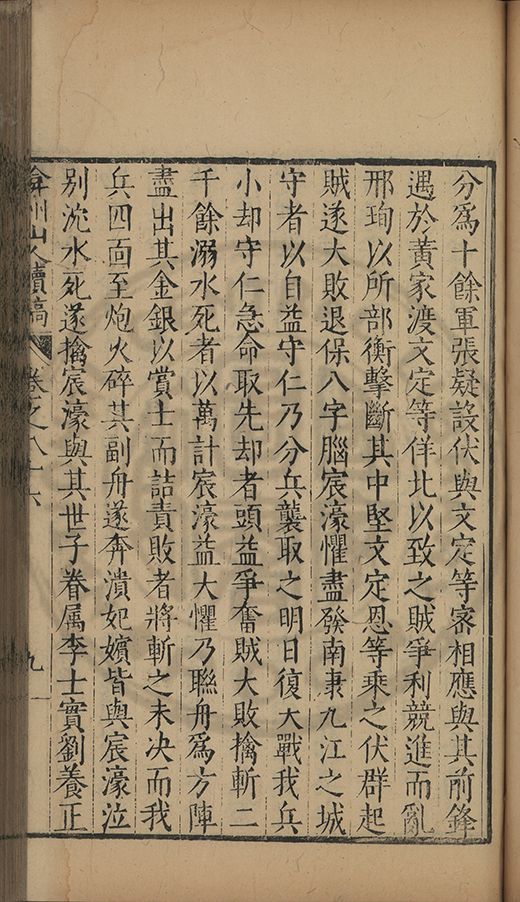 分爲十餘軍張疑設伏與文定等密相應與其前鋒
遇於黃家渡文定等佯北以致之賊爭利競進而亂
邢珣以所部衡擊斷其中堅文定恩等乘之伏群起
賊遂大敗退保八字腦宸濠懼盡發南康九江之城
守者以自益守仁乃分兵襲取之明日復大戰我兵
小却守仁急命取先却者頭益爭奮賊大敗擒斬二
千餘溺水死者以萬計宸濠益大懼乃聯舟爲方陣
盡出其金銀以賞士而詰責敗者將斬之未决而我
兵四面至炮火碎其副舟遂奔潰妃嬪皆與宸濠泣
别沈水死遂擒宸濠與其世子眷属李士實劉養正
弇州山人續稿 卷之八十六 九